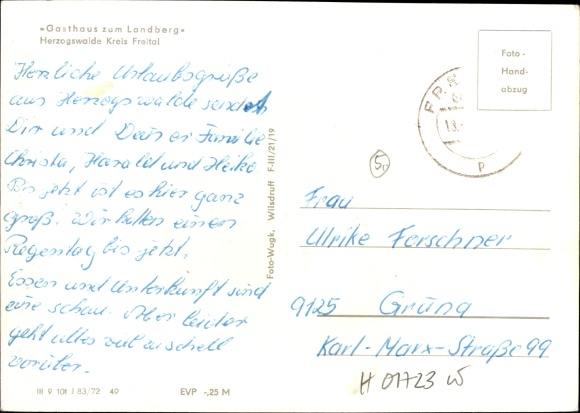 »Gasthaus zum Landberg«
Herzogswalde Kreis Freital
Herzliche Urlaubsgrüße
aus Herzogswalde sendet
Dir und Deiner Familie
Christa, Harald und Heike.
Bis jetzt ist es hier ganz
groß. Wir hatten einen
Regentag bis jetzt.
Essen und Unterkunft sind
eine schau. Aber leider
geht alles viel zu schnell
vorüber.
III 9 101 J 83/72 49
EVP -,25 M
Foto-Wugk, Wilsdruff F-III/21/19
Foto-
Hand-
abzug
FR
13.
P
5,
Frau
Ulrike Ferschner
9125 Grüna
Karl-Marx-Straße 99
H 01723 W